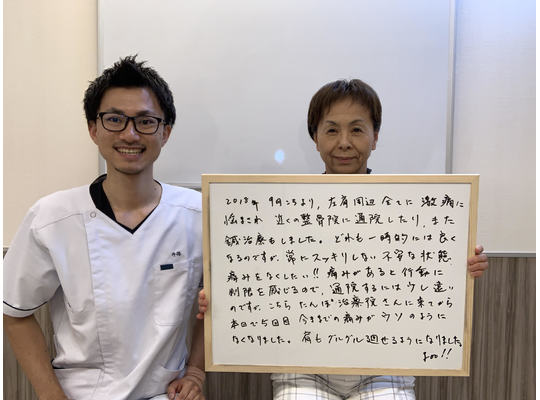 2018年 9月ごろより、左肩周辺全てに激痛に
悩まされ 近くの整骨院に通院したり、また
鍼治療もしました。どれも一時的には良く
なるのですが、常にスッキリしない不安な状態、
痛みをなくしたい!! 痛みがあると行動に
制限を感じるので、通院するには少し遠い
のですが、こちら たんぽぽ治療院さんに来てから
本日で5回目 今までの痛みがウソのように
なくなりました。肩もグルグル廻せるようになりました。